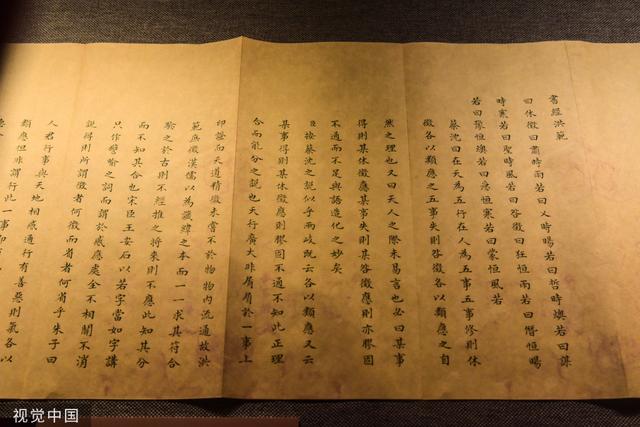 書經洪範
曰休徵曰肅時雨若曰乂時暘若曰哲時燠若曰謀
時寒若曰聖時風若曰咎徵曰狂恒雨若曰僭恒暘
若曰豫恒燠若曰急恒寒若曰蒙恒風若
蔡沈曰在天為五行在人為五事五事修則休
徵各以類應之五事失則咎徵各以類應之自
然之理也又曰天人之際未易言也必曰某事
得則某休徵應某事失則某咎徵應則亦膠固
不通而不足與語造化之妙矣
臣按蔡沈之說似乎兩岐既云各以類應又云
某事得則某休徵應則膠固不通不知此正理
合而能分之說也天行廣大非屑屑於一事上
印證而天道精微未嘗不於物物內流通故洪
範庶徵漢儒以為讖緯之本而一一求其符合
驗之於古則不經推之將來則不應此知其分
而不知其合也宋臣王安石以若字當如字講
只作譬喻之詞而謂於感應處全不相關不消
說得則所謂徵者何徵而省者何省乎朱子曰
人君行事與天地相感通行有善惡則氣各以
類應但非謂行此一事即有
視觉中国